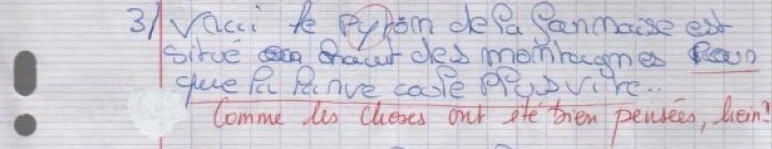 3/ Voici le pyron de la lannaise est
situé en haut des montagnes pour
que la lanve coule plus vite..
Comme les choses ont été bien pensées, hein?